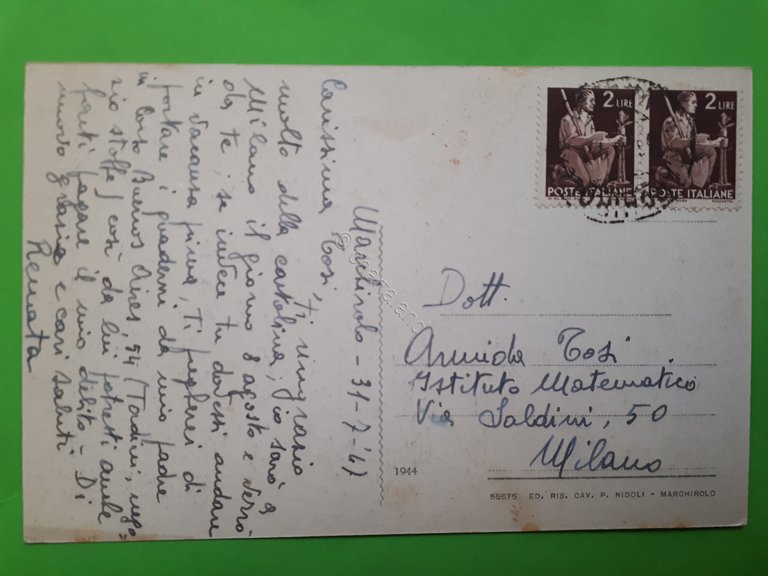 Marchirolo - 31-7-'47
Carissima Tosi,
Ti ringrazio
molto della cartolina; io sarò a
Milano il giorno 8 agosto e verrò
da te; se invece tu dovessi andare
in vacanza prima, Ti pregherei di
portare i quaderni da mio padre
in Corso Buenos Aires, 54 (Tadini, nego-
zio stoffe) così da lui potresti anche
farti pagare il mio debito - Di
nuovo grazie e cari saluti
Renata
2 LIRE
POSTE ITALIANE
2 LIRE
POSTE ITALIANE
Dott.
Armida Tosi
Istituto Matematico
Via Saldini, 50
Milano
1944
55575 ED. RIS. CAV. P. NIDOLI - MARCHIROLO